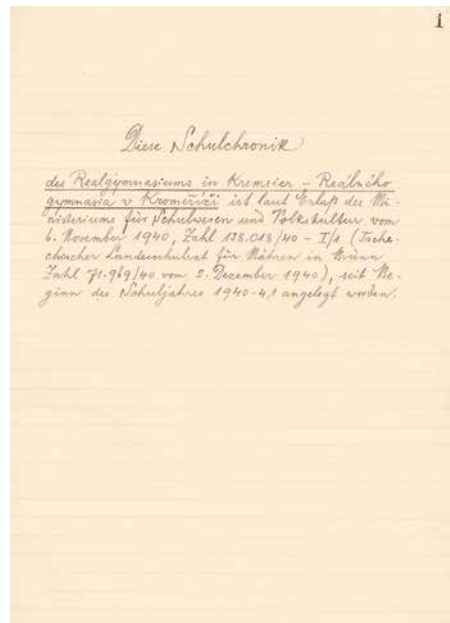 1
Diese Schulchronik
des Realgymnasiums in Kremsier – Reálného
gymnasia v Kroměříži ist laut Erlaß des Mi-
nisteriums für Schulwesen und Volkskultur vom
6. November 1940, Zahl 138.018/40 – I/1 (Tsche-
chischer Landesschulrat für Mähren in Brünn
Zahl 71.969/40 vom 2. Dezember 1940), seit Be-
ginn des Schuljahres 1940-41 angelegt worden.